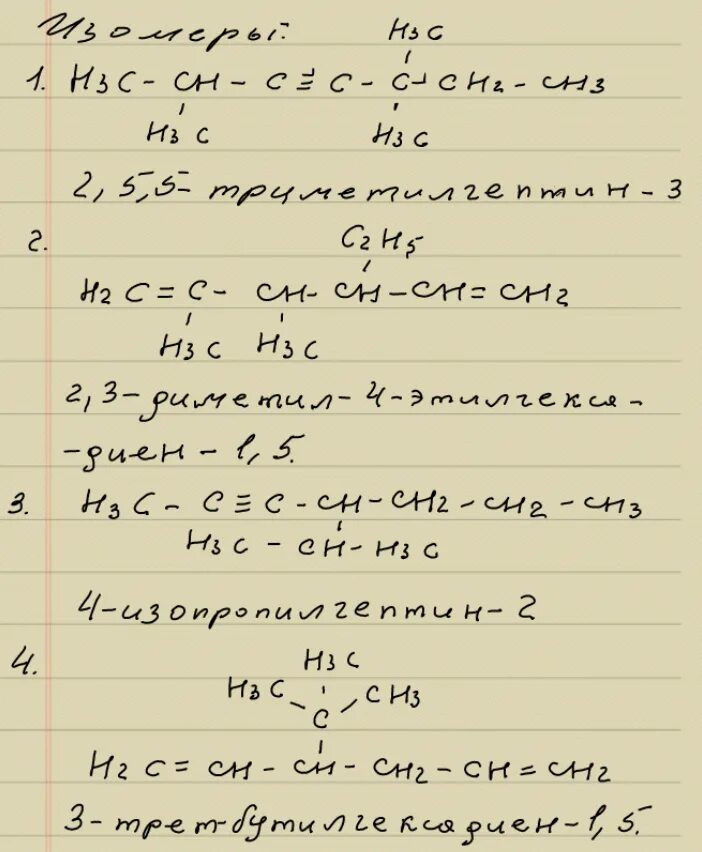 Изомеры:
H3C
1. H3C - CH - C ≡ C - C - CH2 - CH3
H3C H3C
2, 5,5- триметилгептин - 3
2. C2H5
H2C = C - CH - CH - CH = CH2
H3C H3C
2, 3 - диметил - 4 - этилгекса -
- диен - 1, 5.
3. H3C - C ≡ C - CH - CH2 - CH2 - CH3
H3C - CH - H3C
4 - изопропилгептин - 2
4. H3C
H3C CH3
C
H2C = CH - CH - CH2 - CH = CH2
3 - трет-бутилгексадиен - 1, 5.